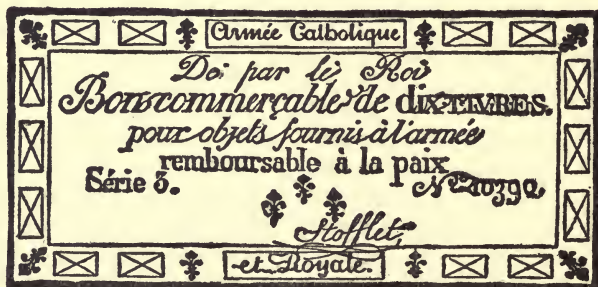 Armée Catholique
De par le Roi
Bon commerçable de dix LIVRES.
pour objets fournis à l'armée
remboursable à la paix
Série 3. Nº 10390
Stofflet
et Royale.